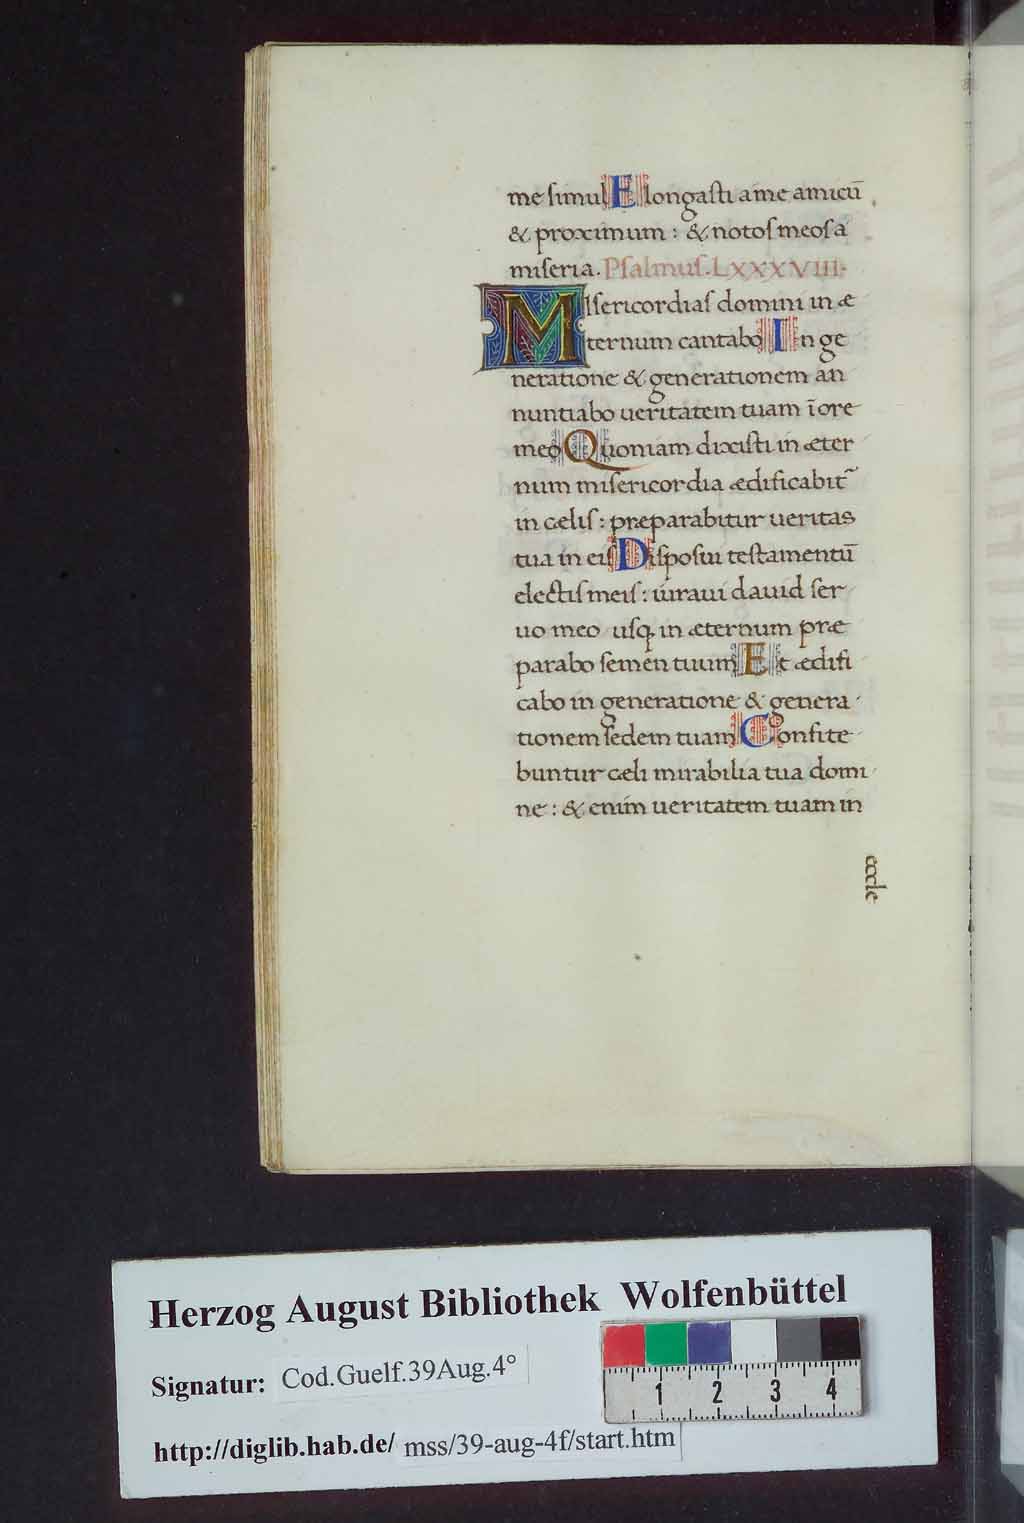 me ſimul Elongaſti a me amicū
& proximum : & notoſ meoſ a
miſeria. Pſalmuſ. LXXXVIII.
MIſericordiaſ domini in æ
ternum cantabo In ge
neratione & generationem an
nuntiabo ueritatem tuam ī ore
meo Quoniam dixiſti in æter
num miſericordia ædificabit᷑
in cęliſ : præparabitur ueritas
tua in eiſ Diſpoſui teſtamentū
electiſ meiſ : iuraui dauid ſer
uo meo uſq; in æternum præ
parabo ſemen tuum Et ædifi
cabo in generatione & genera
tionem ſedem tuam Confite
buntur cęli mirabilia tua domi
ne : & enim ueritatem tuam in
eccle
Herzog August Bibliothek Wolfenbüttel
Signatur: Cod.Guelf.39Aug.4°
1 2 3 4
http://diglib.hab.de/ mss/39-aug-4f/start.htm